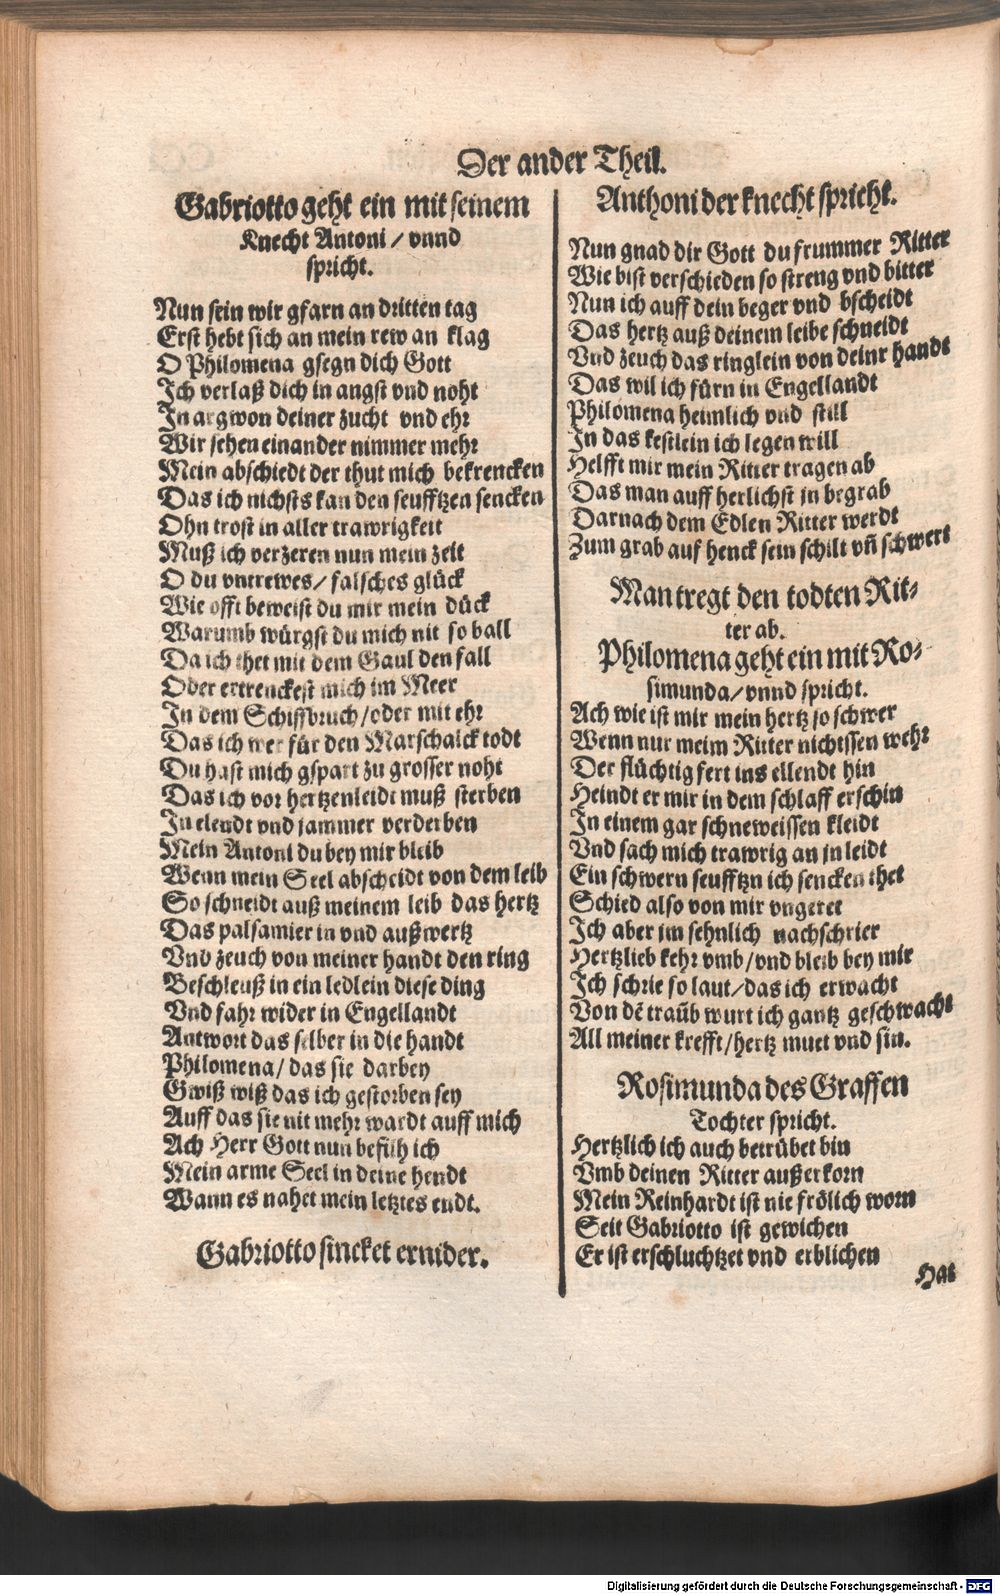 Der ander Theil.
Gabriotto geht ein mit seinem
Knecht Antoni / vnnd
spricht.
Nun sein wir gfarn an dritten tag
Erst hebt sich an mein rew an klag
O Philomena gsegn dich Gott
Ich verlaß dich in angst vnd noht
In argwon deiner zucht vnd ehr
Wir sehen einander nimmer mehr
Mein abschiedt der thut mich bekrencken
Das ich nichsts kan den seufftzen sencken
Ohn trost in aller trawrigkeit
Muß ich verzeren nun mein zeit
O du vntrewes / falsches glück
Wie offt beweist du mir mein dück
Warumb würgst du mich nit so ball
Da ich thet mit dem Gaul den fall
Oder ertrenckest mich im Meer
In dem Schiffbruch / oder mit ehr
Das ich wer für den Marschalck todt
Du hast mich gspart zu grosser noht
Das ich vor hertzenleidt muß sterben
In elendt vnd jammer verderben
Mein Antoni du bey mir bleib
Wenn mein Seel abscheidt von dem leib
So schneidt auß meinem leib das hertz
Das palsamier in vnd außwertz
Vnd zeuch von meiner handt den ring
Beschleuß in ein ledlein diese ding
Vnd fahr wider in Engellandt
Antwort das selber in die handt
Philomena / das sie darbey
Gwiß wiß das ich gestorben sey
Auff das sie nit mehr wardt auff mich
Ach Herr Gott nun befilh ich
Mein arme Seel in deine hendt
Wann es nahet mein letztes endt.
Gabriotto sincket ernider.
Anthoni der knecht spricht.
Nun gnad dir Gott du frummer Ritter
Wie bist verschieden so streng vnd bitter
Nun ich auff dein beger vnd bscheidt
Das hertz auß deinem leibe schneidt
Vnd zeuch das ringlein von deinr handt
Das wil ich fürn in Engellandt
Philomena heimlich vnd still
In das kestlein ich legen will
Helfft mir mein Ritter tragen ab
Das man auff herlichst in begrab
Darnach dem Edlen Ritter werdt
Zum grab auf henck sein schilt vñ schwert
Man tregt den todten Rit⸗
ter ab.
Philomena geht ein mit Ro⸗
simunda / vnnd spricht.
Ach wie ist mir mein hertz so schwer
Wenn nur meim Ritter nichtssen wehr
Der flüchtig fert ins ellendt hin
Heindt er mir in dem schlaff erschin
In einem gar schneweissen kleidt
Vnd sach mich trawrig an in leidt
Ein schwern seufftzn ich sencken thet
Schied also von mir vngeret
Ich aber jm sehnlich nachschrier
Hertzlieb kehr vmb / vnd bleib bey mir
Ich schrie so laut / das ich erwacht
Von dẽ traũb wurt ich gantz geschwacht
All meiner krefft / hertz muet vnd sin.
Rosimunda des Graffen
Tochter spricht.
Hertzlich ich auch betrübet bin
Vmb deinen Ritter außerkorn
Mein Reinhardt ist nie frölich worn
Seit Gabriotto ist gewichen
Er ist erschluchtzet vnd erblichen
Hat
Digitalisierung gefördert durch die Deutsche Forschungsgemeinschaft - DFG